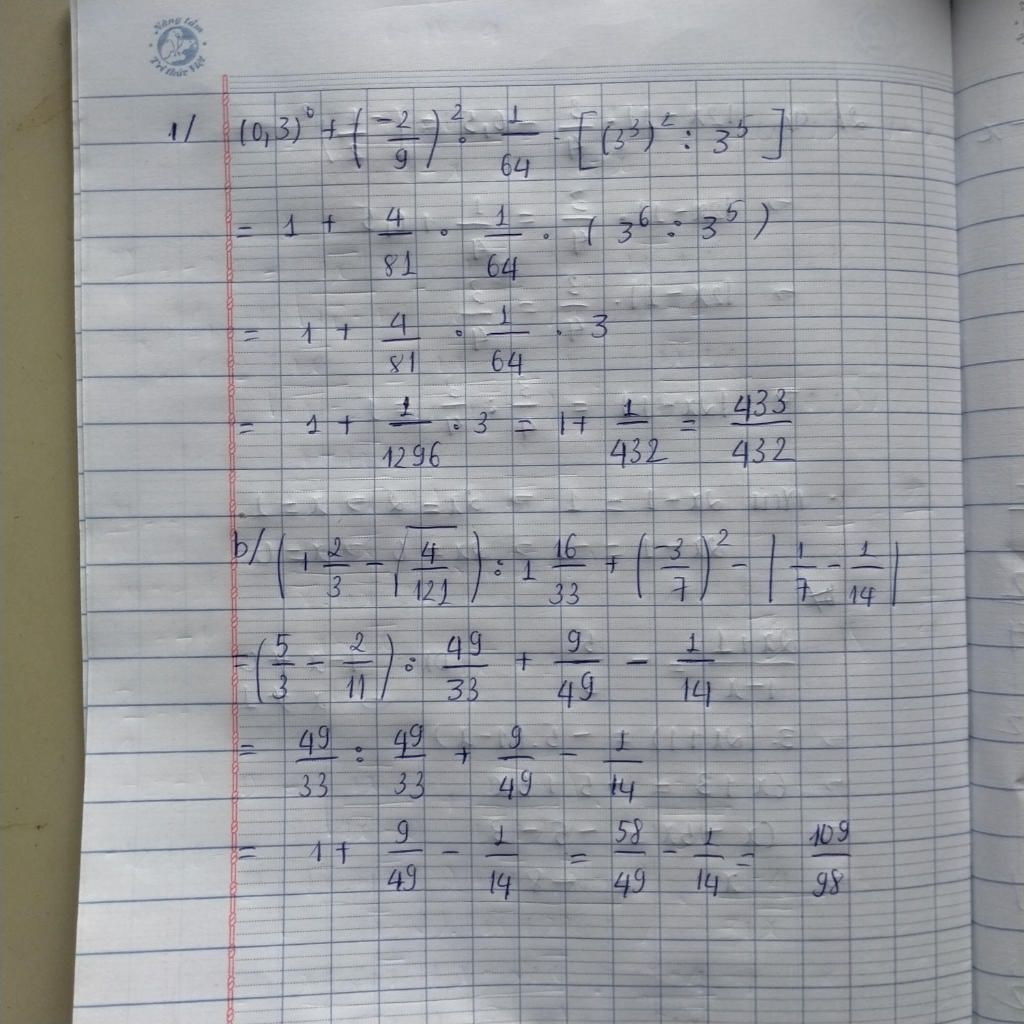 Nâng tầm
Trí thức Việt
1/ (0,3)⁰ + (-2/9)² · 1/64 · [(3³)² : 3⁵]
= 1 + 4/81 · 1/64 · (3⁶ : 3⁵)
= 1 + 4/81 · 1/64 · 3
= 1 + 1/1296 · 3 = 1 + 1/432 = 433/432
b/ (1 2/3 - √(4/121)) : 1 16/33 + (-3/7)² - |1/7 - 1/14|
= (5/3 - 2/11) : 49/33 + 9/49 - 1/14
= 49/33 : 49/33 + 9/49 - 1/14
= 1 + 9/49 - 1/14 = 58/49 - 1/14 = 109/98